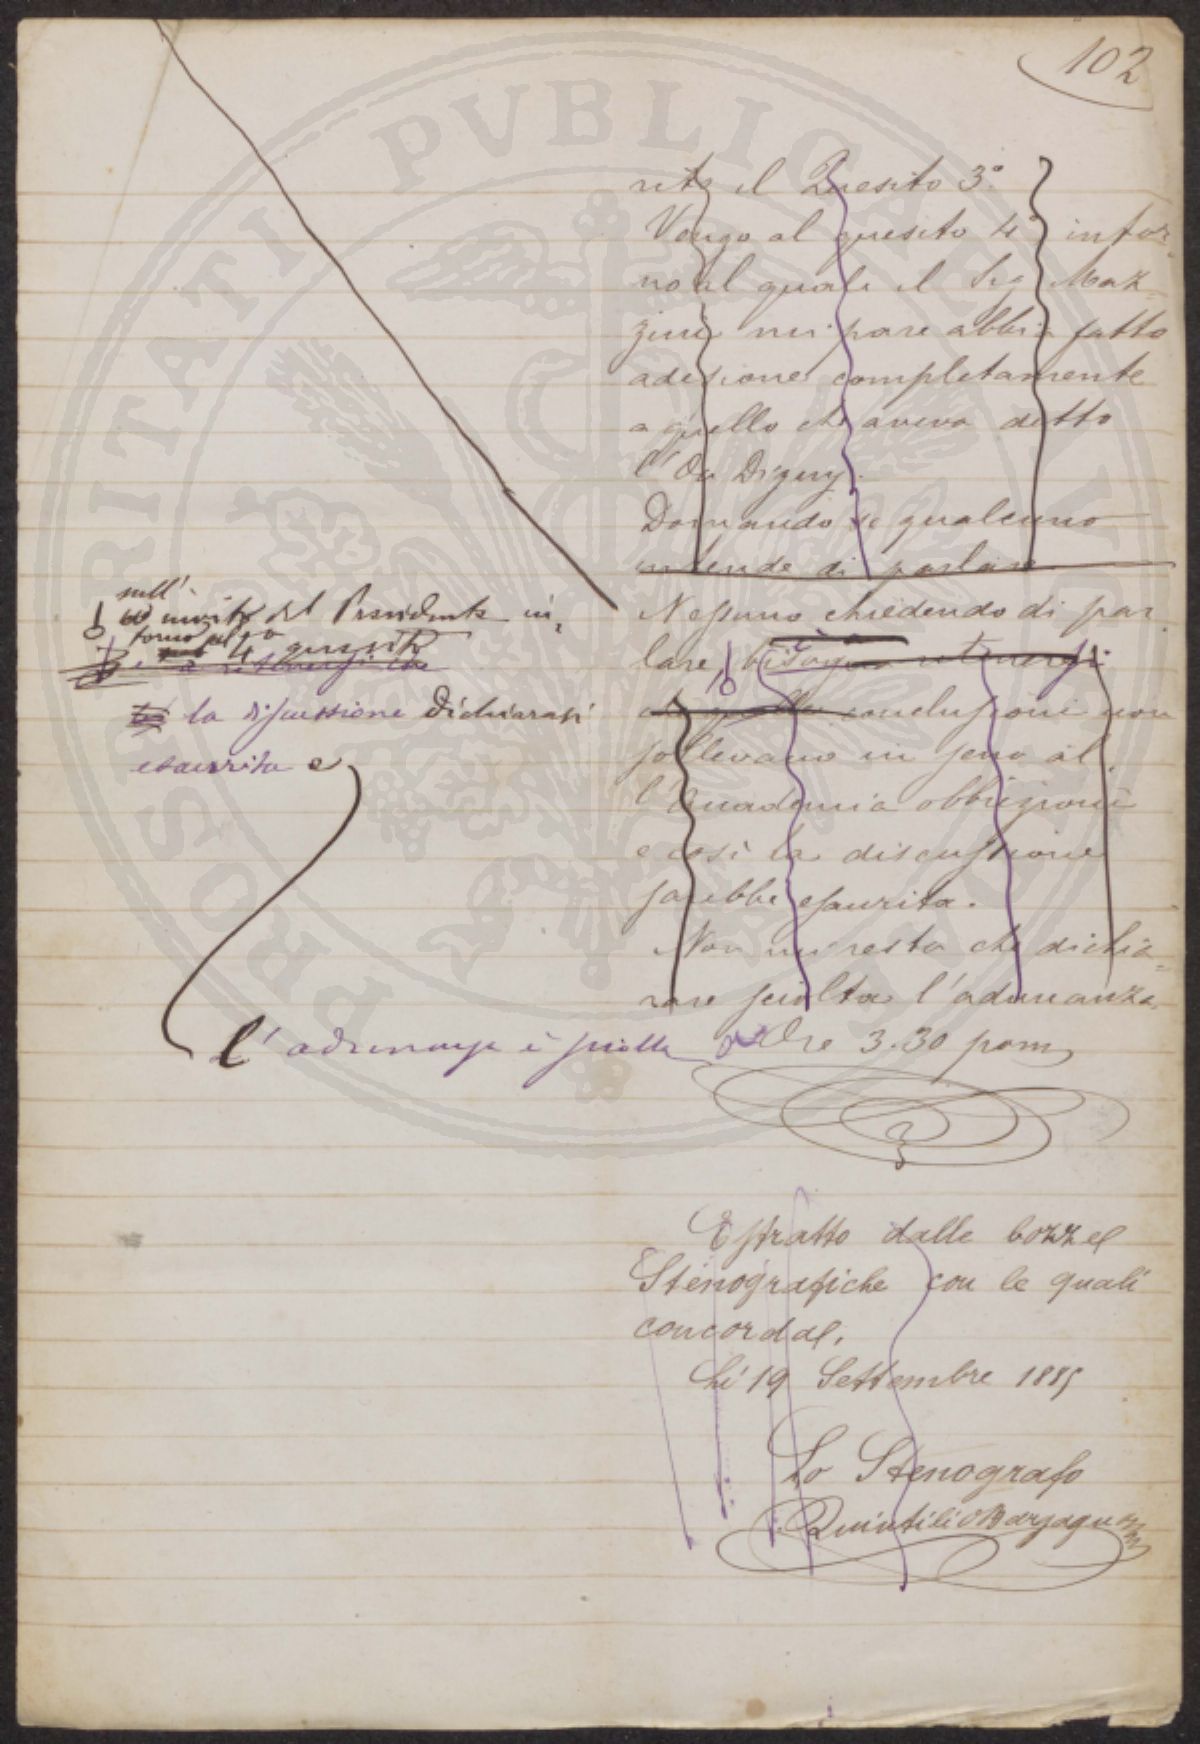 102
rito il Quesito 3.º
Vengo al quesito 4º intor
no al quale il Sig Maz
zini mi pare abbia fatto
adesione completamente
a quello che aveva detto
l'On Digny.
Domando se qualcuno
intende di parlare
Nessuno chiedendo di par
lare,
conclusioni non
sollevano in seno al
l'Accademia obbiezioni
e così la discussione
sarebbe esaurita.
Non mi resta che dichia
rare sciolta l'adunanza
Ore 3.30 pom
sull'
invito del Presidente in,
torno al
4 quesito
la discussione dichiarasi
esaurita e
l'adunanza è sciolta
Estratto dalle bozze
Stenografiche con le quali
concorda.
Li 19 Settembre 1885
Lo Stenografo
Quintilio
PROSPERITATI PVBLICAE